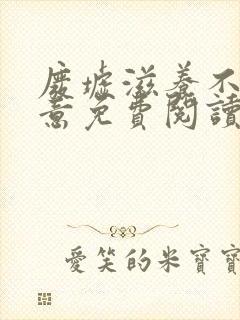 廢墟滋養不
意免費閱讀
愛笑的米寶寶